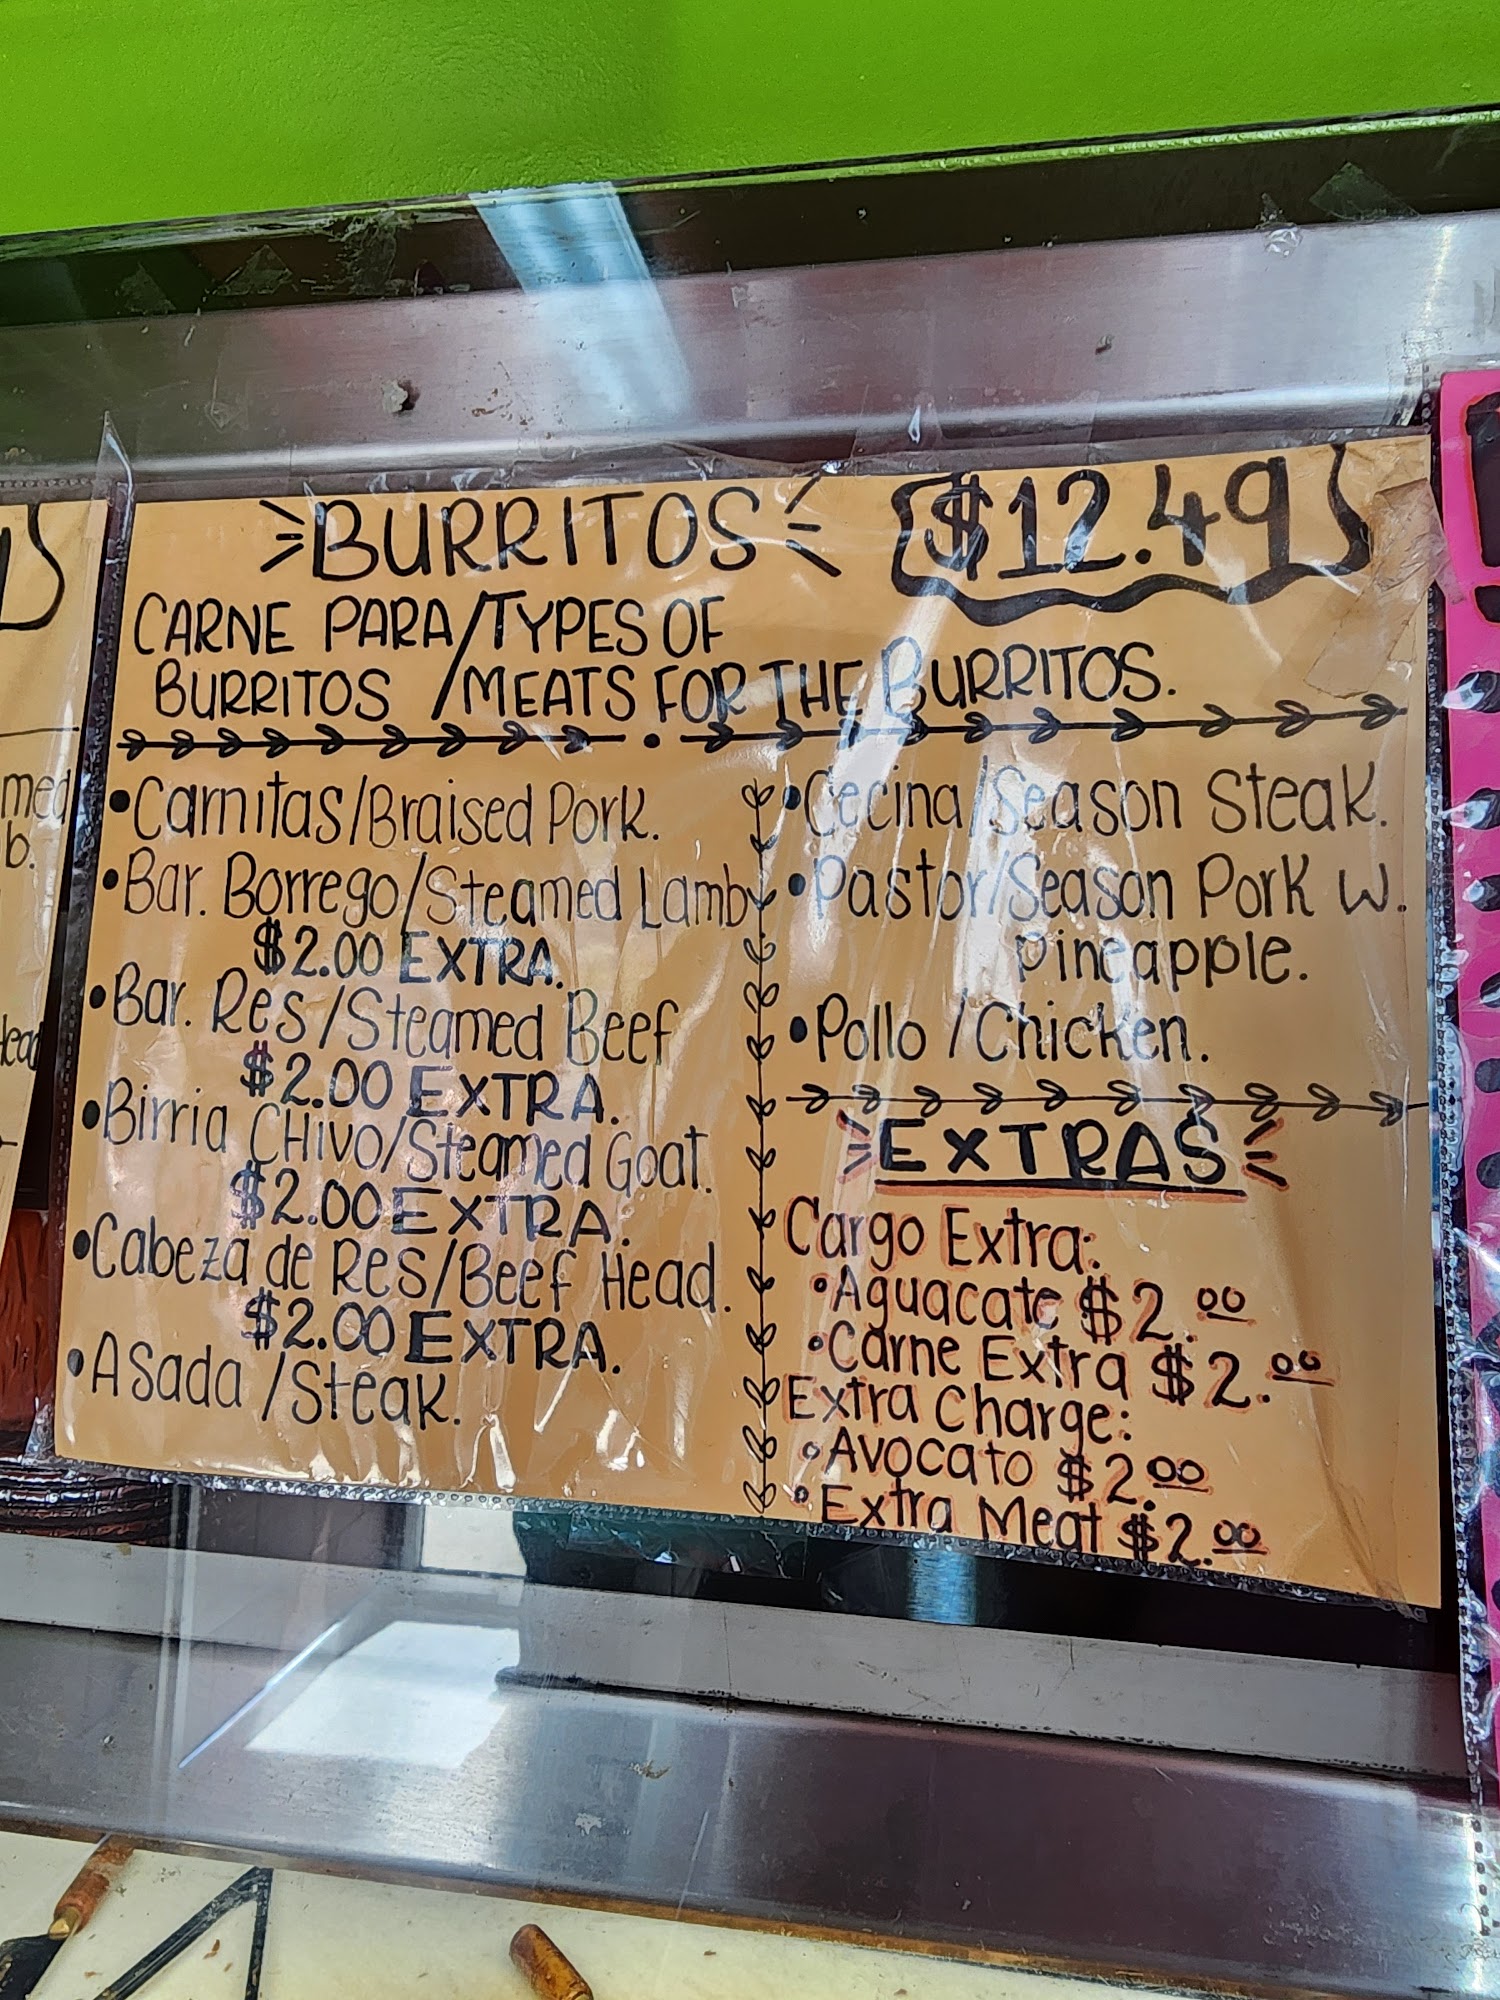 BURRITOS $12.49
CARNE PARA/TYPES OF
BURRITOS /MEATS FOR THE BURRITOS.
•Carnitas/Braised Pork.
•Bar. Borrego/Steamed Lamb
$2.00 EXTRA.
•Bar. Res/Steamed Beef
$2.00 EXTRA.
•Birria CHivo/Steamed Goat.
$2.00 EXTRA.
•Cabeza de Res/Beef Head.
$2.00 EXTRA.
•Asada/Steak.
•Cecina/Season Steak.
•Pastor/Season Pork w.
Pineapple.
•Pollo/Chicken.
EXTRAS
Cargo Extra:
•Aguacate $2.00
•Carne Extra $2.00
Extra Charge:
•Avocato $2.00
•Extra Meat $2.00